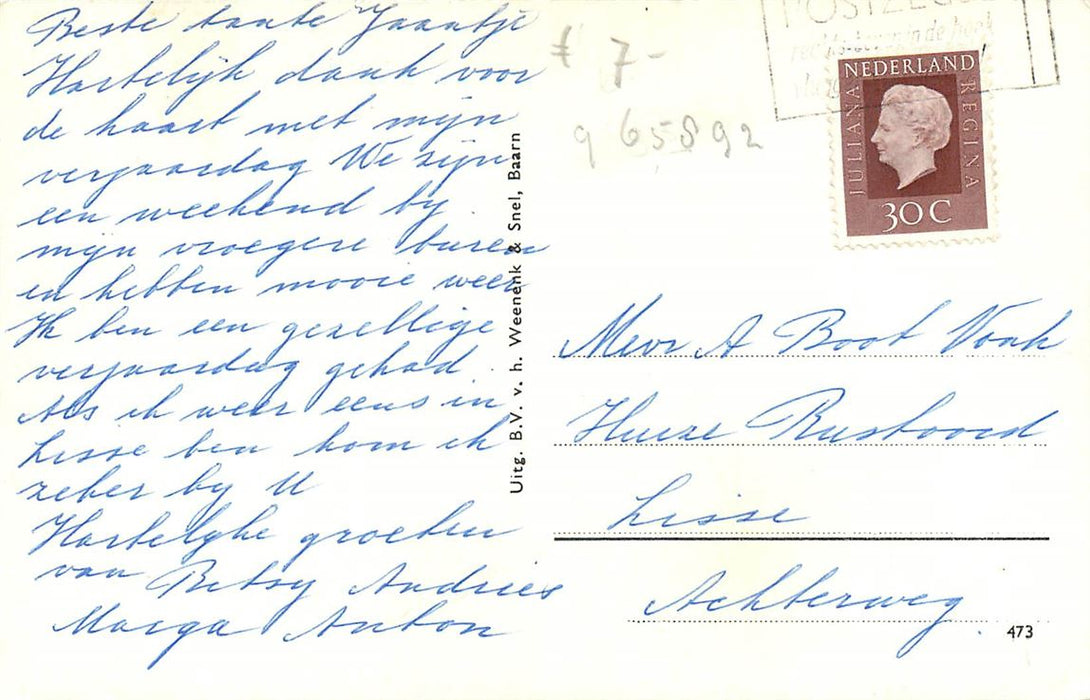 Beste tante Jaantje
Hartelijk dank voor
de kaart met mijn
verjaardag We zijn
een weekend by
mijn vroegere buren
en hebben mooie weer
Ik ben een gezellige
verjaardag gehad.
Als ik weer eens in
Lisse ben kom ik
zeker by U
Hartelyke groeten
van Betsy Andries
Marga Anton
Uitg. B.V. v. h. Weenenk & Snel, Baarn
£ 7-
9 65892
POSTZEGEL
rechts boven in de hoek
NEDERLAND
JULIANA
REGINA
30 C
Mevr A Boot Vonk
Huize Rustoord
Lisse
Achterweg.
473